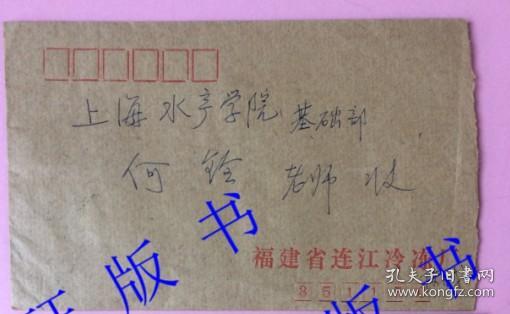 上海水产学院 基础部
何铨 老师 收
福建省连江冷冻厂
3511
版书
版书
孔夫子旧书网
www.kongfz.com